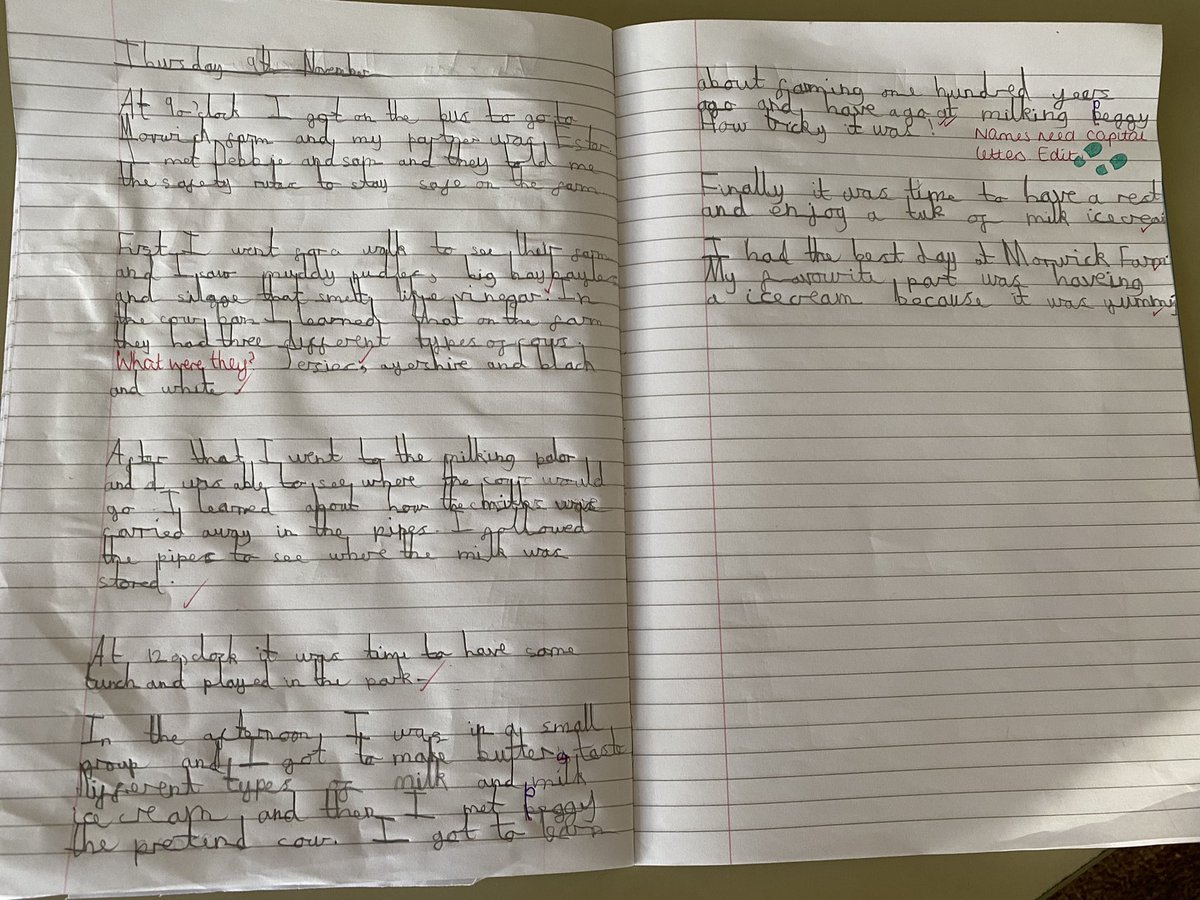 Thursday 9th November
At 9o'clock I got on the bus to go to
Morwich farm and my partner was Ester.
I met Debbie and sam and they told me
the safety rules to stay safe on the farm
First, I went for a walk to see their farm
and I saw muddy pudles, big hay bayles
and silage that smelt like vinegar. In
the cow barn I learned that on the farm
they had three different types of cows.
What were they? Jersies, ayershire and black
and white
After that I went to the milking palor
and I was able to see where the cows would
go. I learned about how the milk was
carried away in the pipes. I followed
the pipes to see where the milk was
stored.
At 12 o'clock it was time to have some
lunch and played in the park.
In the afternoon, I was in a small
group and I got to make butter, taste
different types of milk and milk
icecream and then I met Peggy
the pretend cow. I got to learn
about farming one hundred years
ago and have a go at milking Peggy
How tricky it was!
Names need capital
letters Edit
Finally it was time to have a rest
and enjoy a tub of milk icecream
I had the best day at Morwick Farm
My favourite part was haveing
a icecream because it was yummy